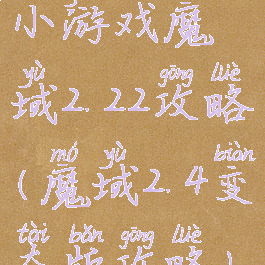 小游戏魔
yù gōng lüè
域2.22攻略
mó yù biàn
(魔域2.4变
tài bǎn gōng lüè
态版攻略)